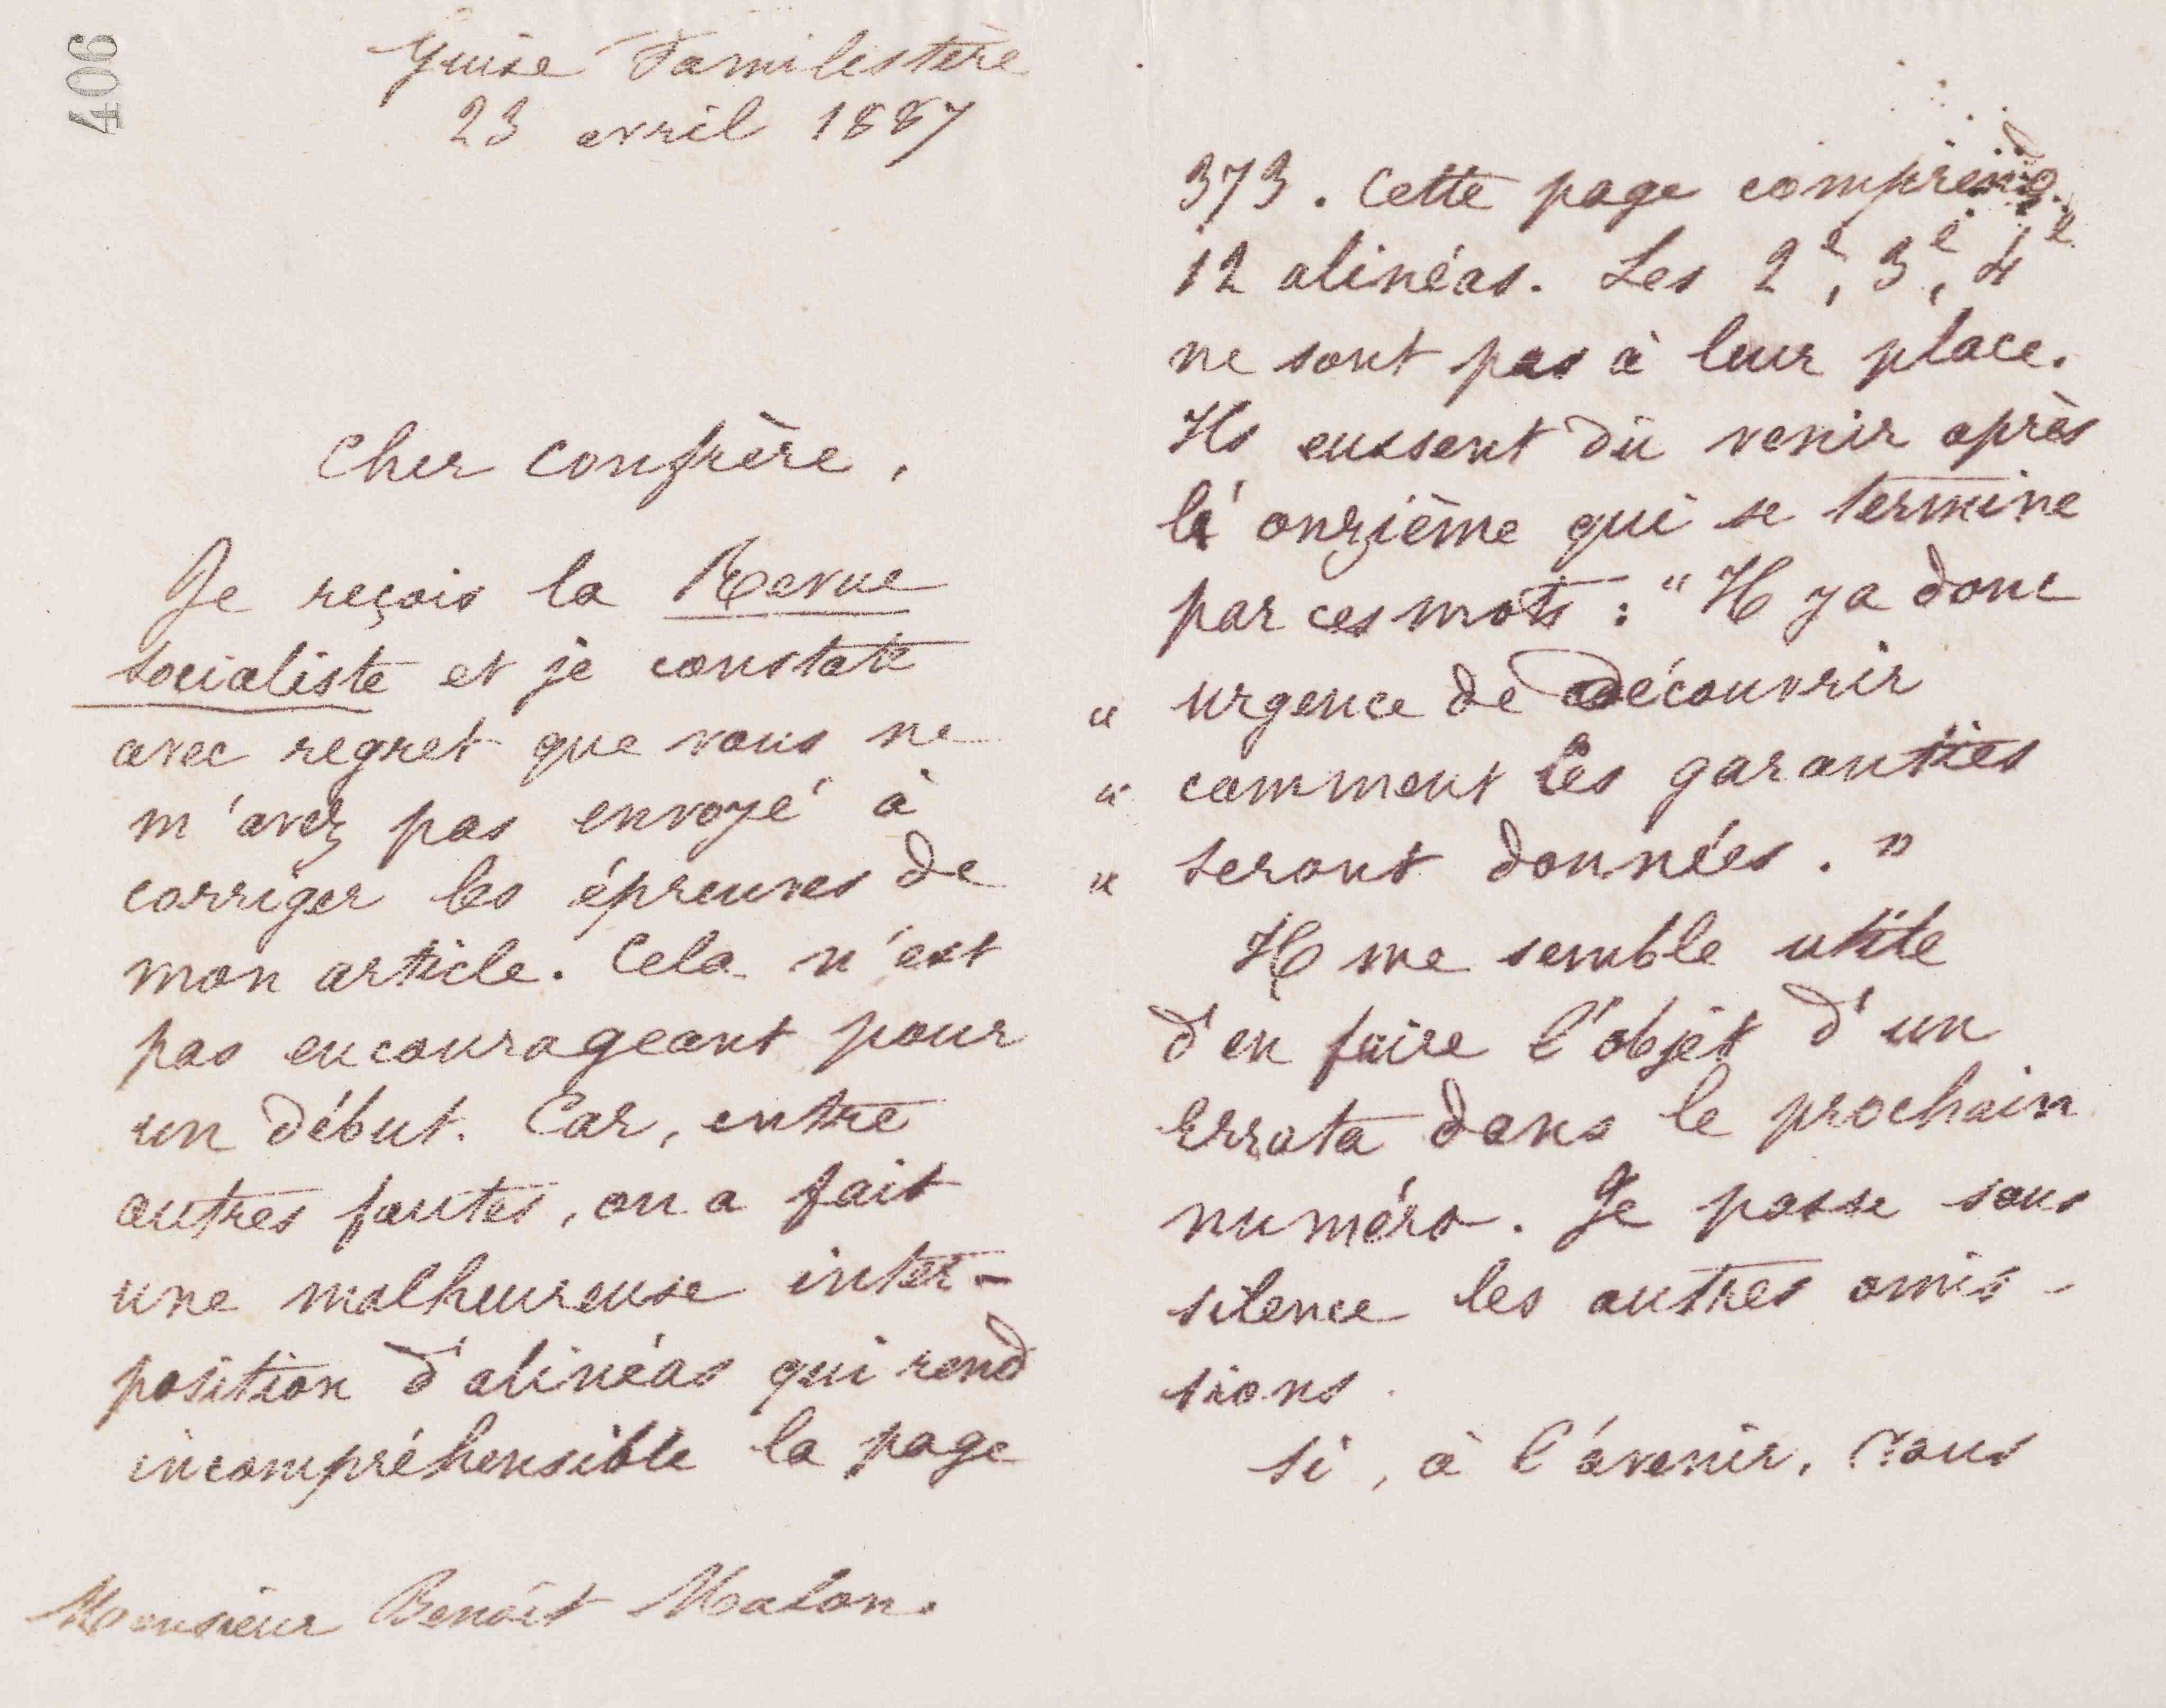 406
Guise Familistère
23 avril 1887
Cher Confrère,
Je reçois la Revue
socialiste et je constate
avec regret que vous ne
m'avez pas envoyé à
corriger les épreuves de
mon article. Cela n'est
pas encourageant pour
un début. Car, entre
autres fautes, on a fait
une malheureuse inter-
position d'alinéas qui rend
incompréhensible la page
Monsieur Benoît Malon.
373. Cette page comprend
12 alinéas. Les 2e, 3e, 4e
ne sont pas à leur place.
Ils eussent dû venir après
le onzième qui se termine
par ces mots : "Il y a donc
" urgence de découvrir
" comment les garanties
" seront données. "
Il me semble utile
d'en faire l'objet d'un
Errata dans le prochain
numéro. Je passe sous
silence les autres omis-
sions.
Si, à l'avenir, vous